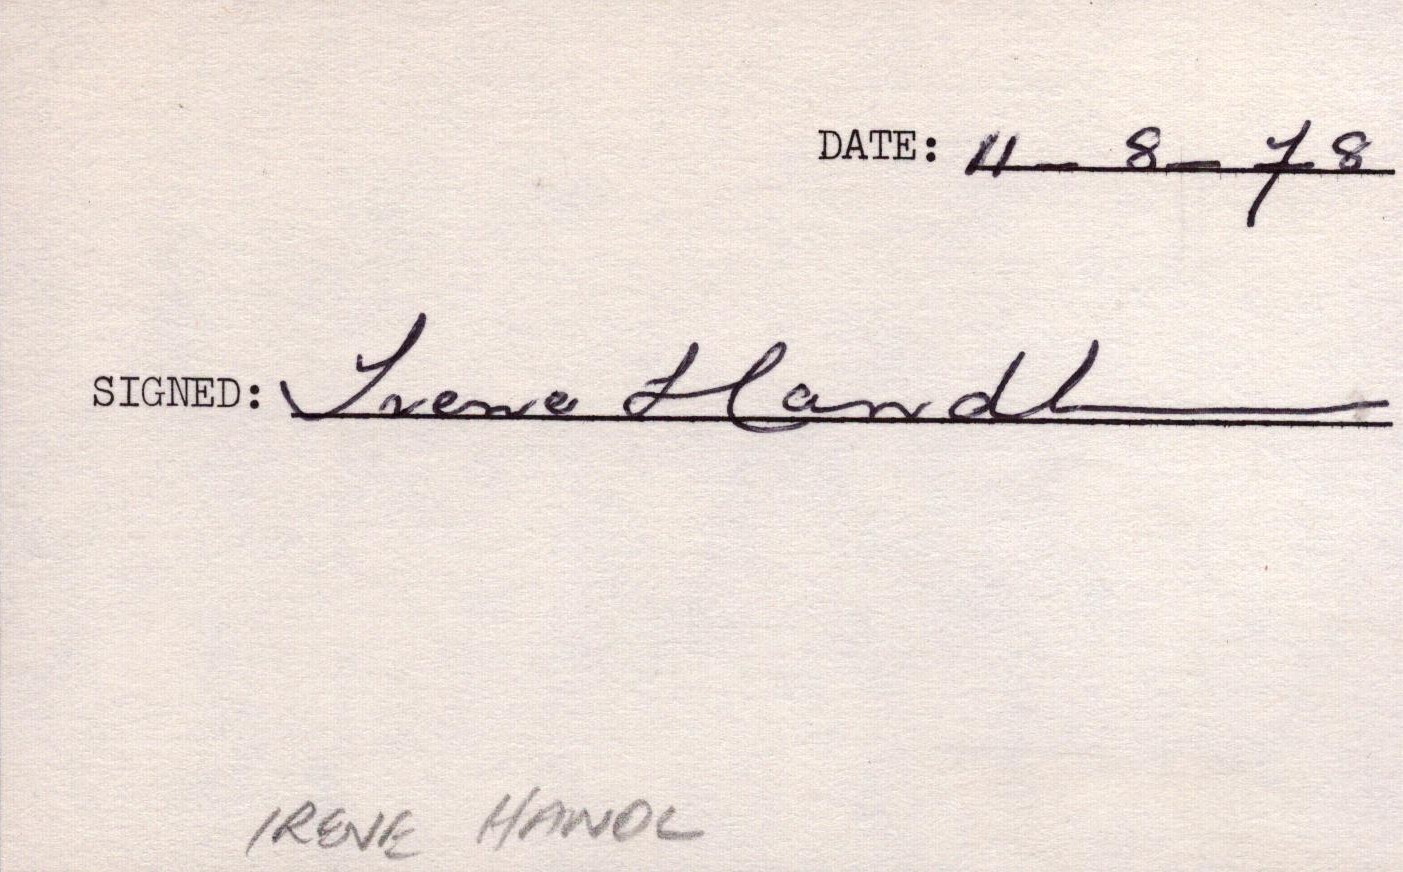 DATE: 11 - 8 - 78
SIGNED: Irene Handl
IRENE HANDL